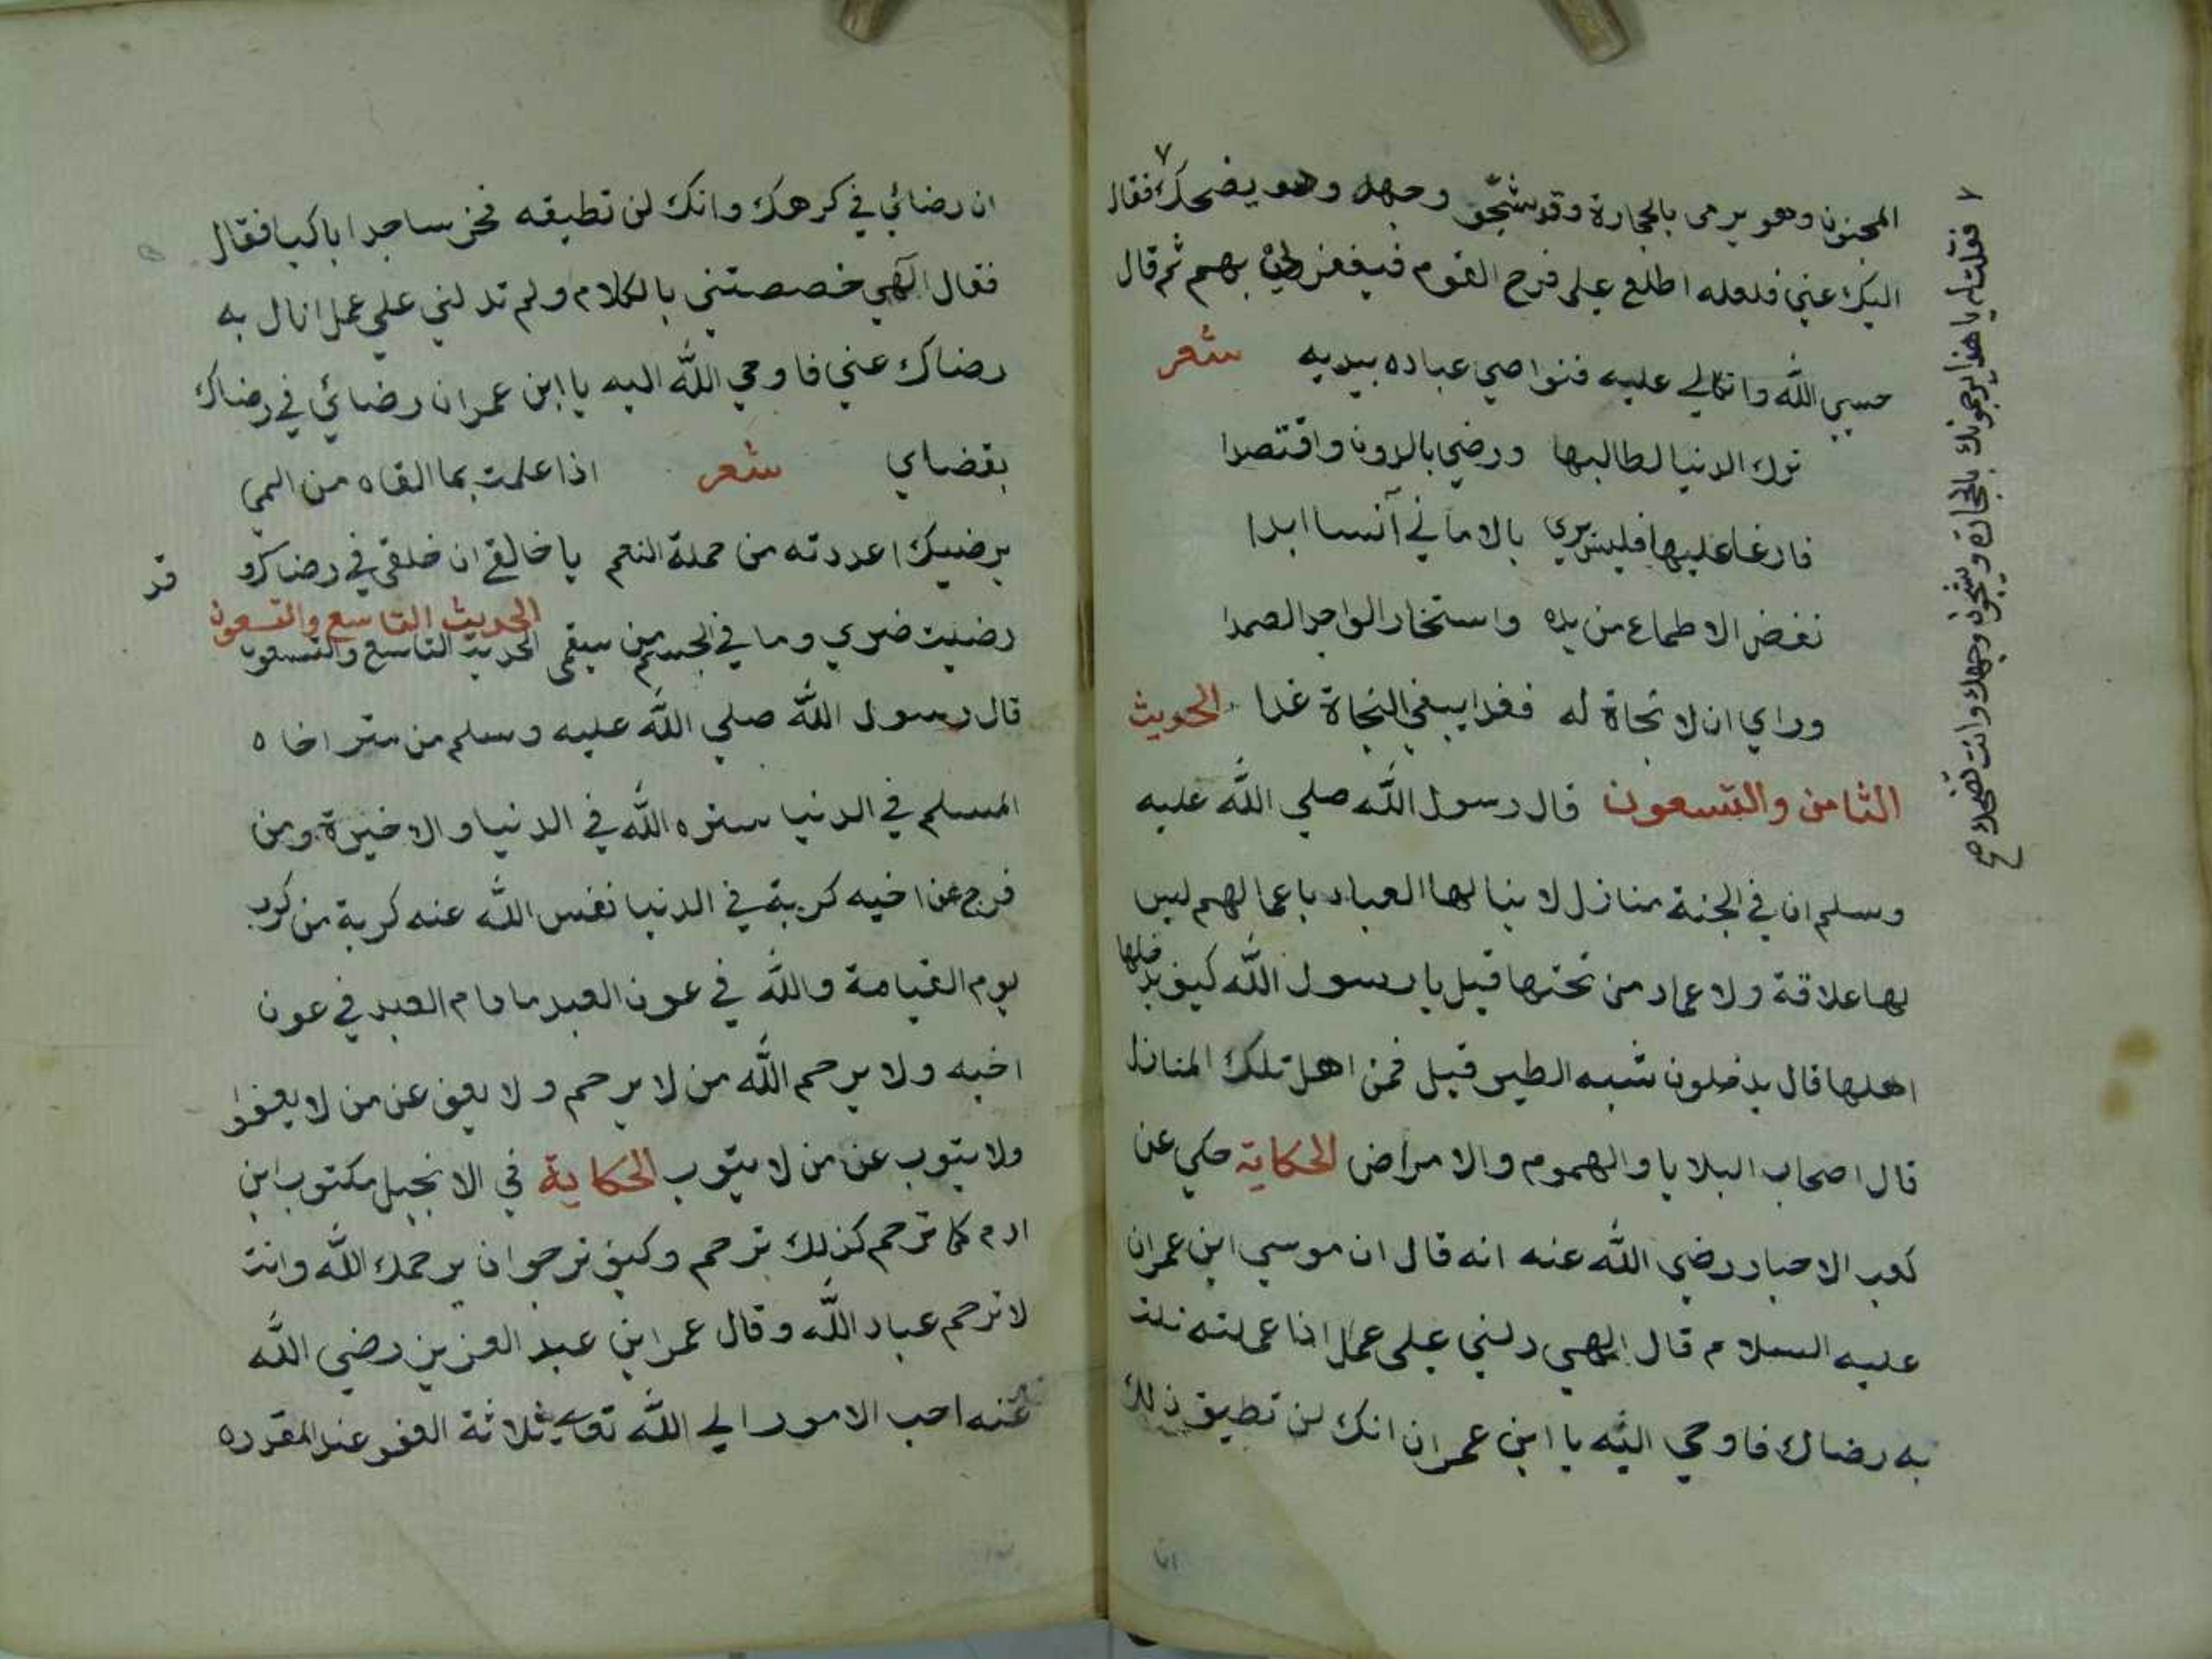 المجنون وهو يرمى بالحجارة وقد شجّو وجهه وهو يضحك فقال
اليك عني فلعله اطلع على فرح القوم فيغفر لي بهم ثم قال
حسبي الله واتكالي عليه فنواصي عباده بيديه شعر
ترك الدنيا لطالبها ورضي بالدون واقتصدا
فارغا عليها فليس يري بالاماني آنسا ابدا
نفض الاطماع من يده واستخار الواحد الصمدا
وراي ان لا نجاة له فغدا يبغي النجاة غدا الحديث
الثامن والتسعون قال رسول الله صلي الله عليه
وسلم ان في الجنة منازل لا ينالها العباد باعمالهم ليس
لها علاقة ولا عماد من تحتها قيل يا رسول الله كيف يدخلها
اهلها قال يدخلون شبه الطير قيل فمن اهل تلك المنازل
قال اصحاب البلايا والهموم والامراض الحكاية حكي عن
كعب الاحبار رضي الله عنه انه قال ان موسي ابن عمران
عليه السلام قال الهي دلني على عمل اذا عملته نلت
به رضاك فاوحي اليه يا ابن عمران انك لن تطيق ذلك
فقلت له يا هذا يرجمونك بالحجارة ويشجون وجهك وانت تضحك صح
ان رضائي في كرهك وانك لن تطيقه فخر ساجدا باكيا فقال
فقال الهي خصصتني بالكلام ولم تدلني علي عمل انال به
رضاك عني فاوحي الله اليه يا ابن عمران رضائي في رضاك
بقضاي شعر اذا علمت بما القاه من المي
يرضيك اعددته من جملة النعم يا خالقي ان خلقي في رضاك و قد
رضيت ضري وما في الجسم من سقمى الحديث التاسع والتسعون
الحديث التاسع والتسعون
قال رسول الله صلي الله عليه وسلم من ستر اخاه
المسلم في الدنيا ستره الله في الدنيا والاخيرة ومن
فرج عن اخيه كربة في الدنيا نفس الله عنه كربة من كرب
يوم القيامة والله في عون العبد ما دام العبد في عون
اخيه ولا يرحم الله من لا يرحم ولا يعف عن من لا يعفوا
ولا يتوب عن من لا يتوب الحكاية في الانجيل مكتوب ابن
ادم كما ترحم كذلك ترحم وكيف ترجوان يرحمك الله وانت
لا ترحم عباد الله وقال عمر ابن عبد العزيز رضي الله
عنه احب الامور الي الله تعالي ثلاثة العفو عند المقدره